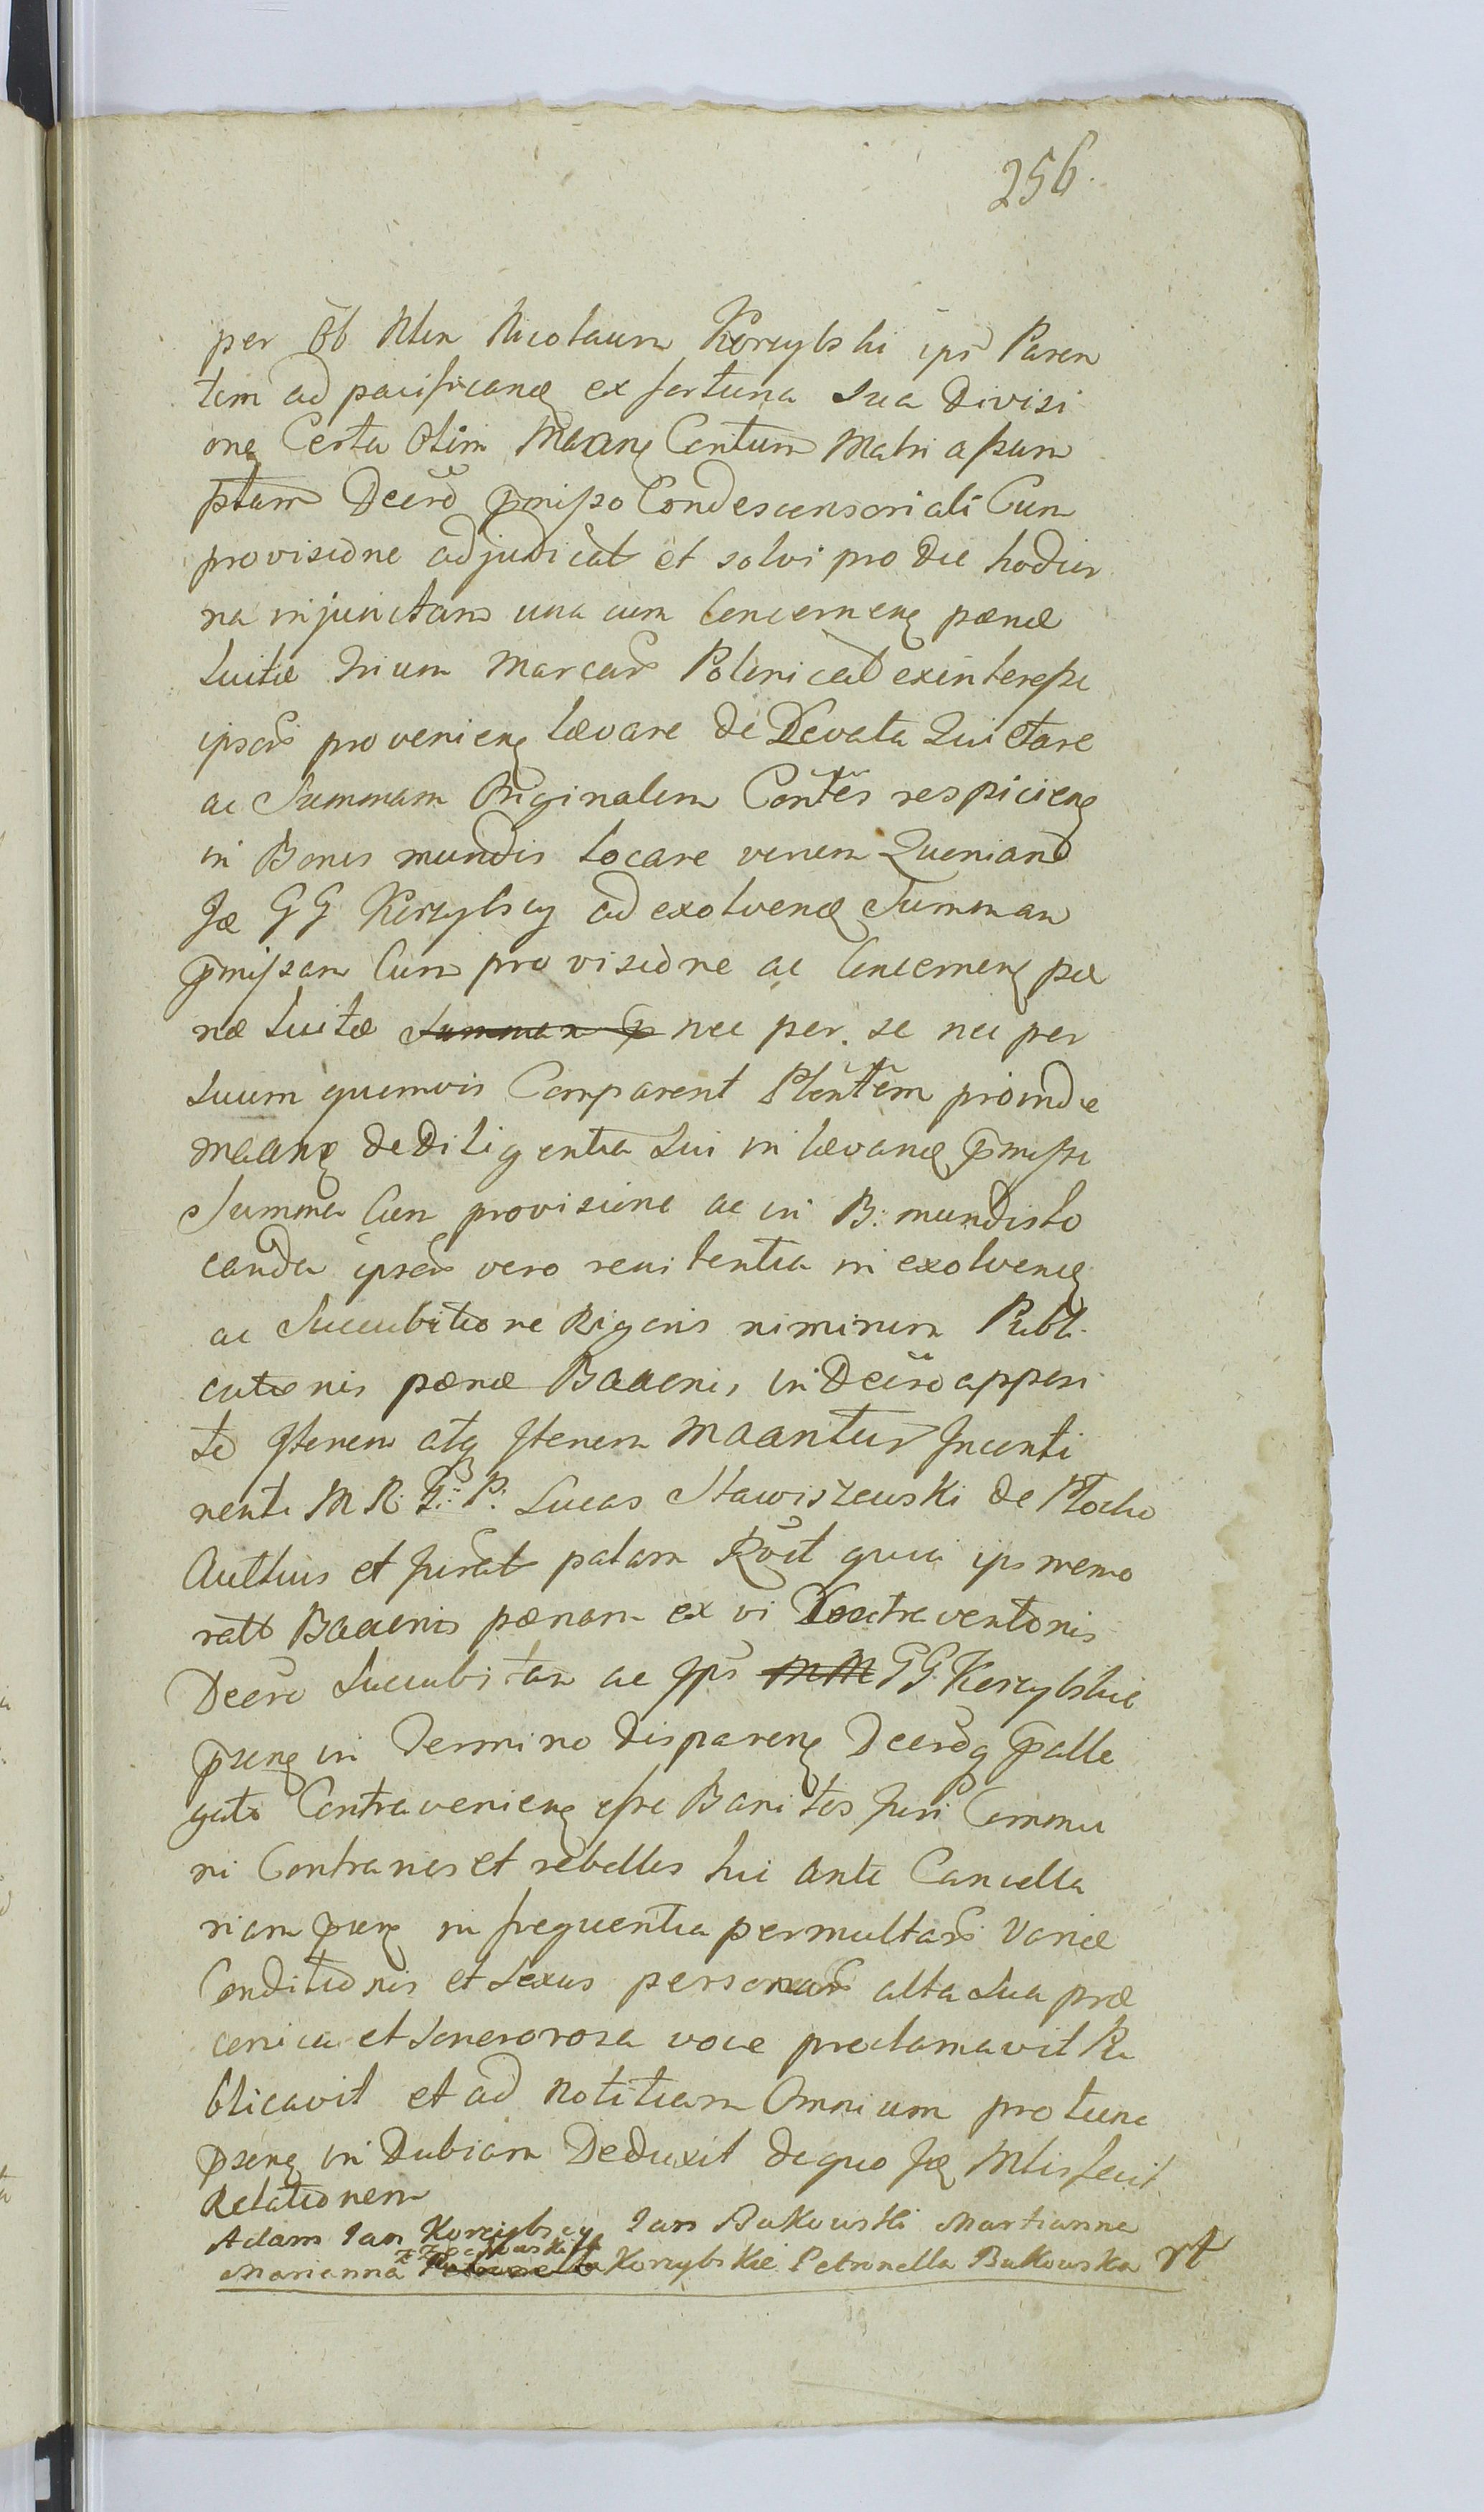 256.
per Ob Mlem Nicolaum Korzybski ips Paren
tem ad pacificanð ex fortuna sua Divisi
onę Certa Olim Maxanę Centum Matri assum
ptam Decrō p̄misso Condescensoriali Cum
provisione adjudicat et solvi pro die hodier
na injunctam una cum Concernenę pœnæ
Luitæ trium Marcar̄ Polonicað ex interesse
ipsar̄ provenienę Lævare de Levata Quietare
ac Summam Originalem Con̄tes respicienę
in Bonis mundis locare venem Queniand
Jæ GG Korzybscy ad exolvenð Summam
p̄missam Cum provisione ac Concernenę pæ
næ Luitæ Summam p̄ nec per se nec per
Suum quemvis Comparent Pten̄tem proinde
maanę de Diligentia Sui in lævanð p̄missa
Summa Cum provisione ac in B: mundis lo
canda ipsar̄ vero renitentia in exolvenð
ac Succubitione Rigoris nimirum Publi
cationis pœnæ Baaonis, in Decrō apposi
to Jtenem atq Jtenem maantur Incenti
nenti M R G: P: Lucas Stawiszewski de Plocko
Aulhuis et Jurat palam Rv̄it quia ips memo
ratt Baaonis pœnam ex vi Contraventonis
Decrō Succubitam ac Jps M M GG Korzybskie
p̄senę in Termino disparenę Decrōq p̄alle
gato Contravenienę esse Banitos Juri Commu
ni Contrarios et rebelles hic Ante Cancella
riam p̄senę in frequentia permultar̄ variæ
Conditionis et Sexus personar̄ alta sua præ
conica et Sonororosa voce proclamavit Pu
blicavit et ad notitiam Omnium pro tunc
p̄senę in Dubiam Deduxit de quo Jæ Mlis fecit
Relationem
Adam Jan Korzybscy Jan Bukowski Martianna
z Zochowskich
Marianna Petronella Korzybskie Petronella Bukowska rt